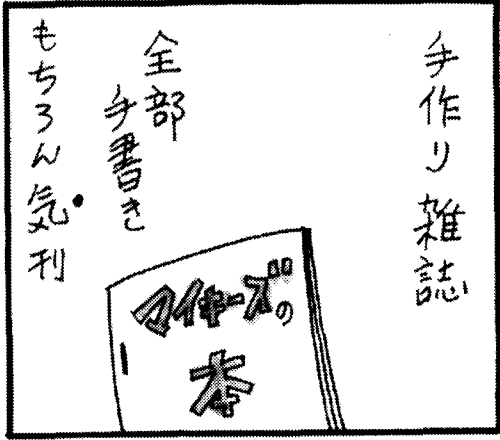 手作り雑誌
全部
手書き
もちろん気刊
マイキーズの
本